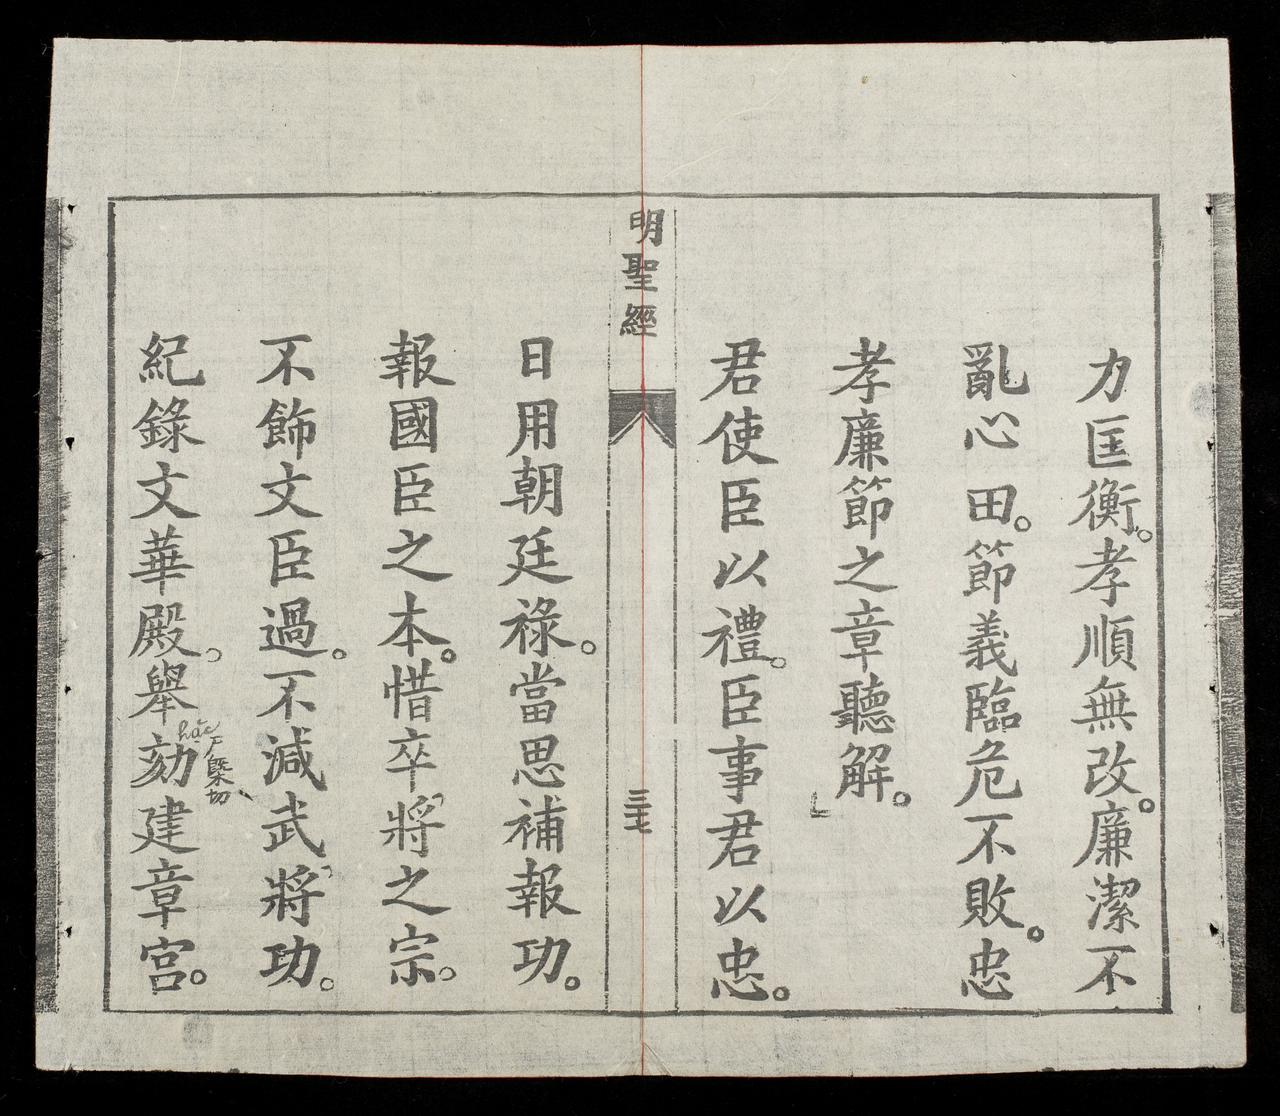 力匡衡。孝順無改。廉潔不
亂心田。節義臨危不敗。忠
孝廉節之章聽解。
君使臣以禮。臣事君以忠。
明聖經
三七
日用朝廷祿。當思補報功。
報國臣之本。惜卒將之宗。
不飾文臣過。不減武將功。
紀錄文華殿。舉劾建章宮。
hặc
戶槩切